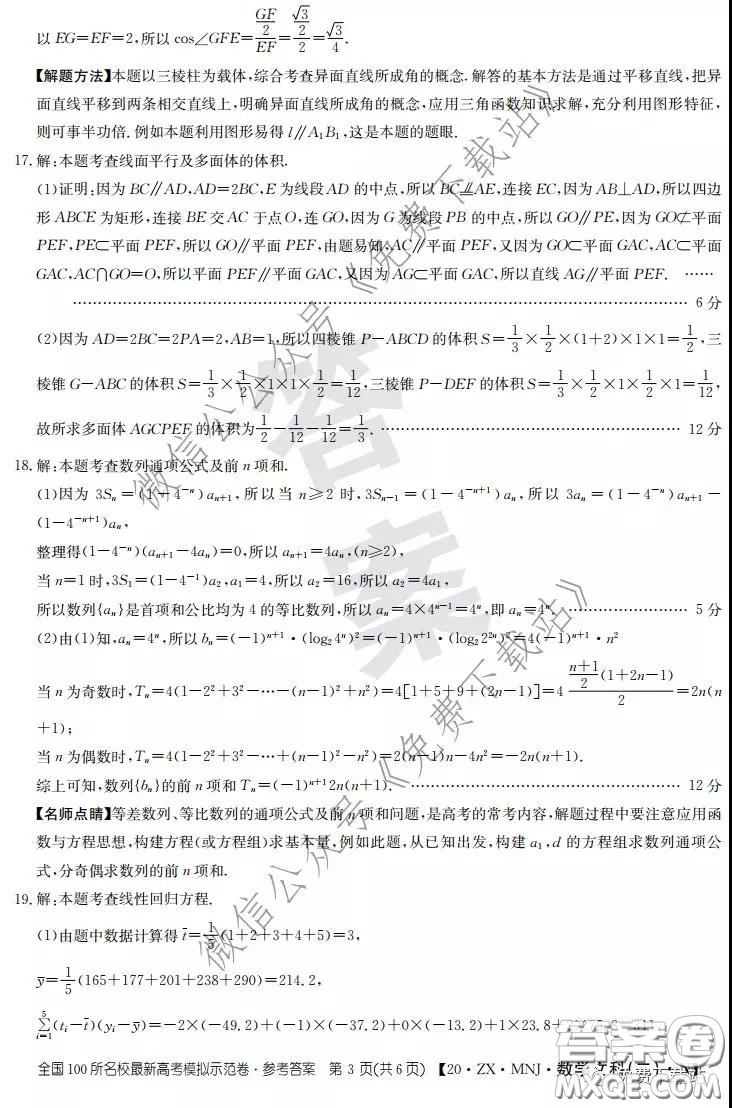 以 EG=EF=2,所以 cos∠GFE=(GF/2)/EF=(√3/2)/2=√3/4.
【解题方法】本题以三棱柱为载体,综合考查异面直线所成角的概念. 解答的基本方法是通过平移直线,把异
面直线平移到两条相交直线上,明确异面直线所成角的概念,应用三角函数知识求解,充分利用图形特征,
则可事半功倍. 例如本题利用图形易得 l∥A₁B₁,这是本题的题眼.
17. 解:本题考查线面平行及多面体的体积.
(1)证明:因为 BC∥AD,AD=2BC,E 为线段 AD 的中点,所以 BC⫽AE,连接 EC,因为 AB⊥AD,所以四边
形 ABCE 为矩形,连接 BE 交 AC 于点 O,连 GO,因为 G 为线段 PB 的中点,所以 GO∥PE,因为 GO⊄平面
PEF,PE⊂平面 PEF,所以 GO∥平面 PEF,由题易知,AC∥平面 PEF,又因为 GO⊂平面 GAC,AC⊂平面
GAC,AC∩GO=O,所以平面 PEF∥平面 GAC,又因为 AG⊂平面 GAC,所以直线 AG∥平面 PEF. ……
…………………………………………………………………… 6 分
(2)因为 AD=2BC=2PA=2,AB=1,所以四棱锥 P-ABCD 的体积 S=1/3×1/2×(1+2)×1×1=1/2,三
棱锥 G-ABC 的体积 S=1/3×1/2×1×1×1/2=1/12,三棱锥 P-DEF 的体积 S=1/3×1/2×1×1/2×1=1/12,
故所求多面体 AGCPEF 的体积为1/2-1/12-1/12=1/3. …………………………………… 12 分
18. 解:本题考查数列通项公式及前 n 项和.
(1)因为 3Sₙ=(1-4⁻ⁿ)aₙ₊₁,所以当 n≥2 时,3Sₙ₋₁=(1-4⁻ⁿ⁺¹)aₙ,所以 3aₙ=(1-4⁻ⁿ)aₙ₊₁-
(1-4⁻ⁿ⁺¹)aₙ,
整理得(1-4⁻ⁿ)(aₙ₊₁-4aₙ)=0,所以 aₙ₊₁=4aₙ,(n≥2),
当 n=1 时,3S₁=(1-4⁻¹)a₂,a₁=4,所以 a₂=16,所以 a₂=4a₁,
所以数列{aₙ}是首项和公比均为 4 的等比数列,所以 aₙ=4×4ⁿ⁻¹=4ⁿ,即 aₙ=4ⁿ. …………… 5 分
(2)由(1)知,aₙ=4ⁿ,所以 bₙ=(-1)ⁿ⁺¹·(log₂4ⁿ)²=(-1)ⁿ⁺¹·(log₂2²ⁿ)²=4(-1)ⁿ⁺¹·n²
当 n 为奇数时,Tₙ=4(1-2²+3²-…-(n-1)²+n²)=4[1+5+9+(2n-1)]=4 ((n+1)/2(1+2n-1))/2=2n(n
+1);
当 n 为偶数时,Tₙ=4(1-2²+3²-…+(n-1)²-n²)=2(n-1)n-4n²=-2n(n+1).
综上可知,数列{bₙ}的前 n 项和 Tₙ=(-1)ⁿ⁺¹2n(n+1). ……………………………… 12 分
【名师点睛】等差数列、等比数列的通项公式及前 n 项和问题,是高考的常考内容,解题过程中要注意应用函
数与方程思想,构建方程(或方程组)求基本量,例如此题,从已知出发,构建 a₁,d 的方程组求数列通项公
式,分奇偶求数列的前 n 项和.
19. 解:本题考查线性回归方程.
(1)由题中数据计算得 t̄=1/5(1+2+3+4+5)=3,
ȳ=1/5(165+177+201+238+290)=214.2,
∑(i=1→5)(tᵢ-t̄)(yᵢ-ȳ)=-2×(-49.2)+(-1)×(-37.2)+0×(-13.2)+1×23.8+
全国 100 所名校最新高考模拟示范卷·参考答案 第 3 页(共 6 页) 【20·ZX·MNJ·数学文科
微信公众号《免费下载站》
答案
微信公众号《免费下载站》
答案圈
MXQE.COM